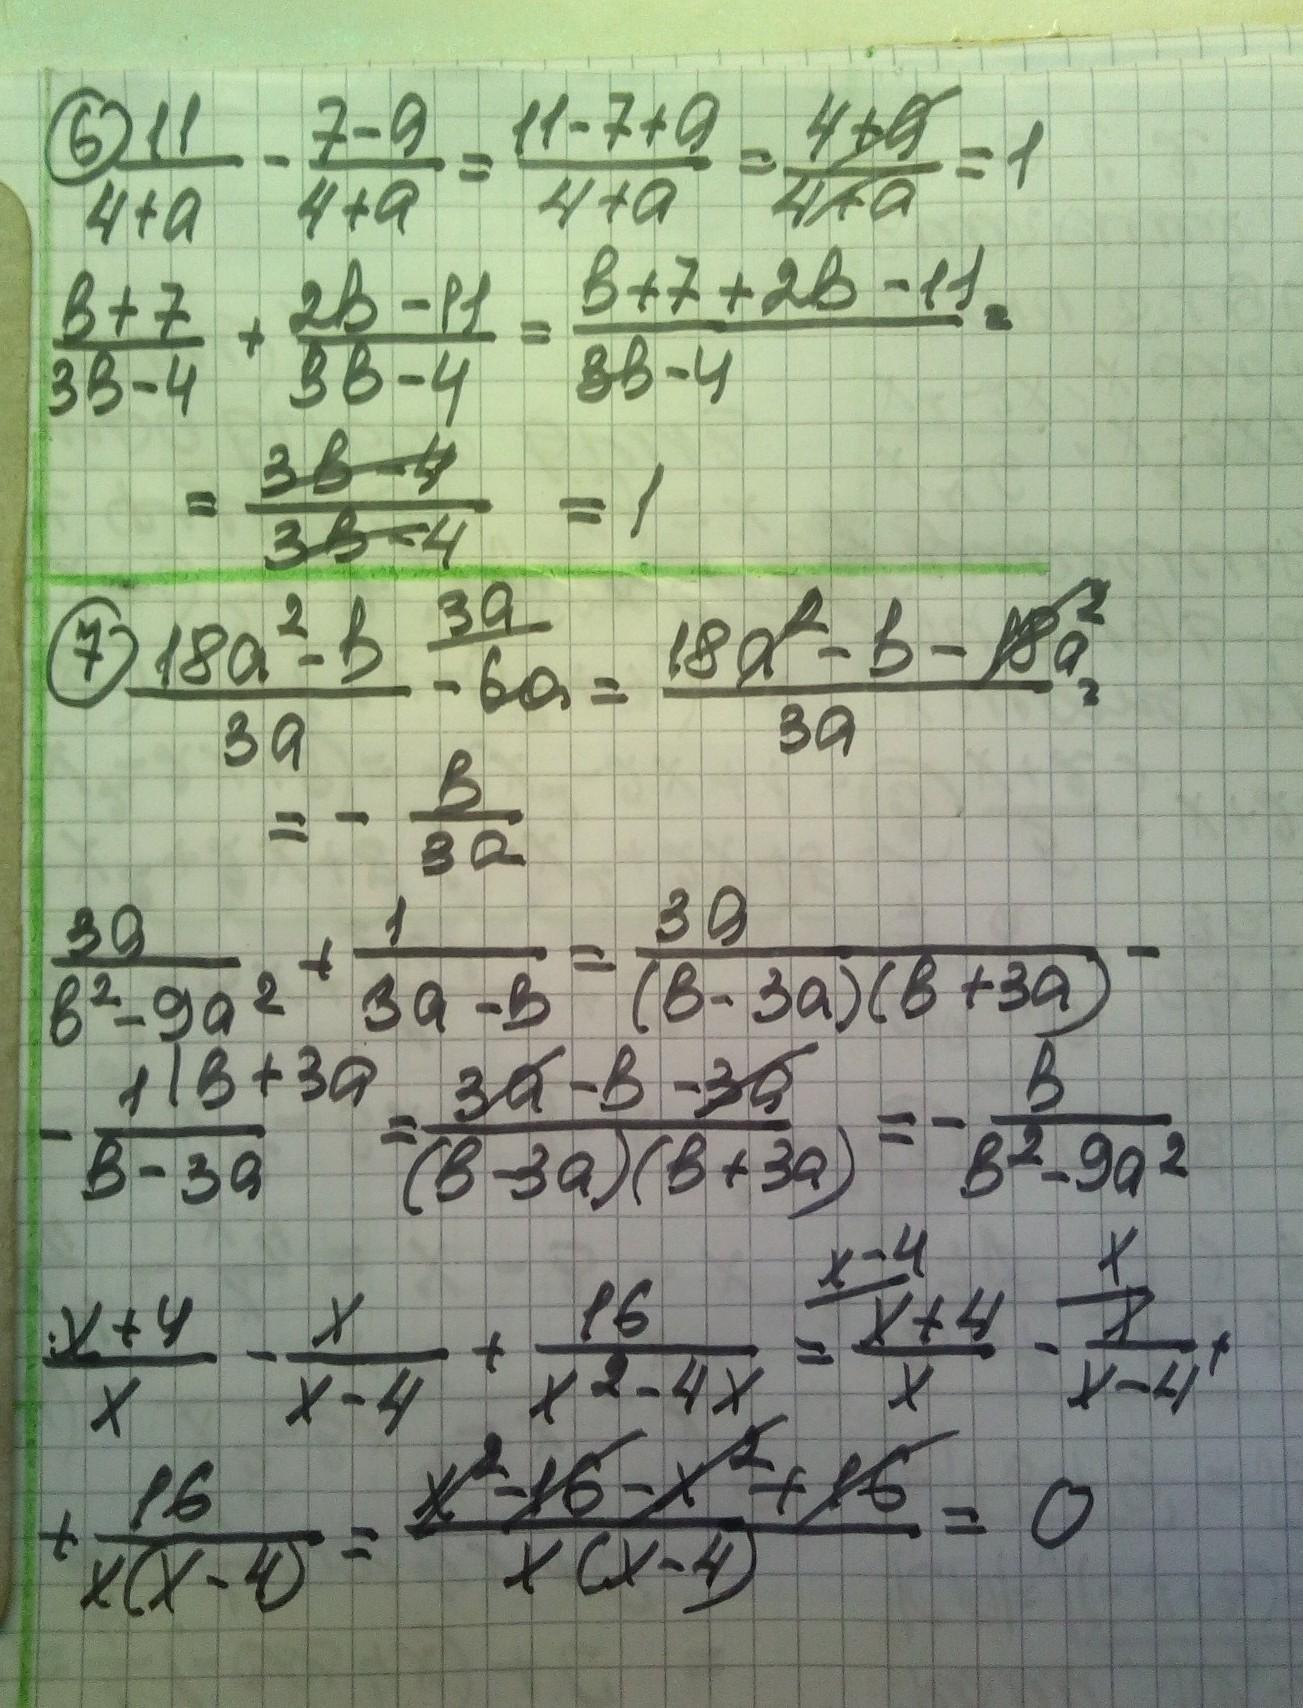 ⑥ 11/(4+a) - (7-a)/(4+a) = (11-7+a)/(4+a) = (4+a)/(4+a) = 1
(в+7)/(3в-4) + (2в-11)/(3в-4) = (в+7+2в-11)/(3в-4) =
= (3в-4)/(3в-4) = 1
⑦ (18a²-в)/3a - 6a/ 3a = (18a²-в-18a²)/3a =
= - в/3a
3a/(в²-9a²) + 1/(3a-в) = 3a/((в-3a)(в+3a)) -
- 1/(в-3a) |в+3a = (3a-в-3a)/((в-3a)(в+3a)) = - в/(в²-9a²)
(x+4)/x - x/(x-4) + 16/(x²-4x) = x-4/ (x+4)/x - x/ x/(x-4) +
+ 16/(x(x-4)) = (x²-16-x²+16)/(x(x-4)) = 0